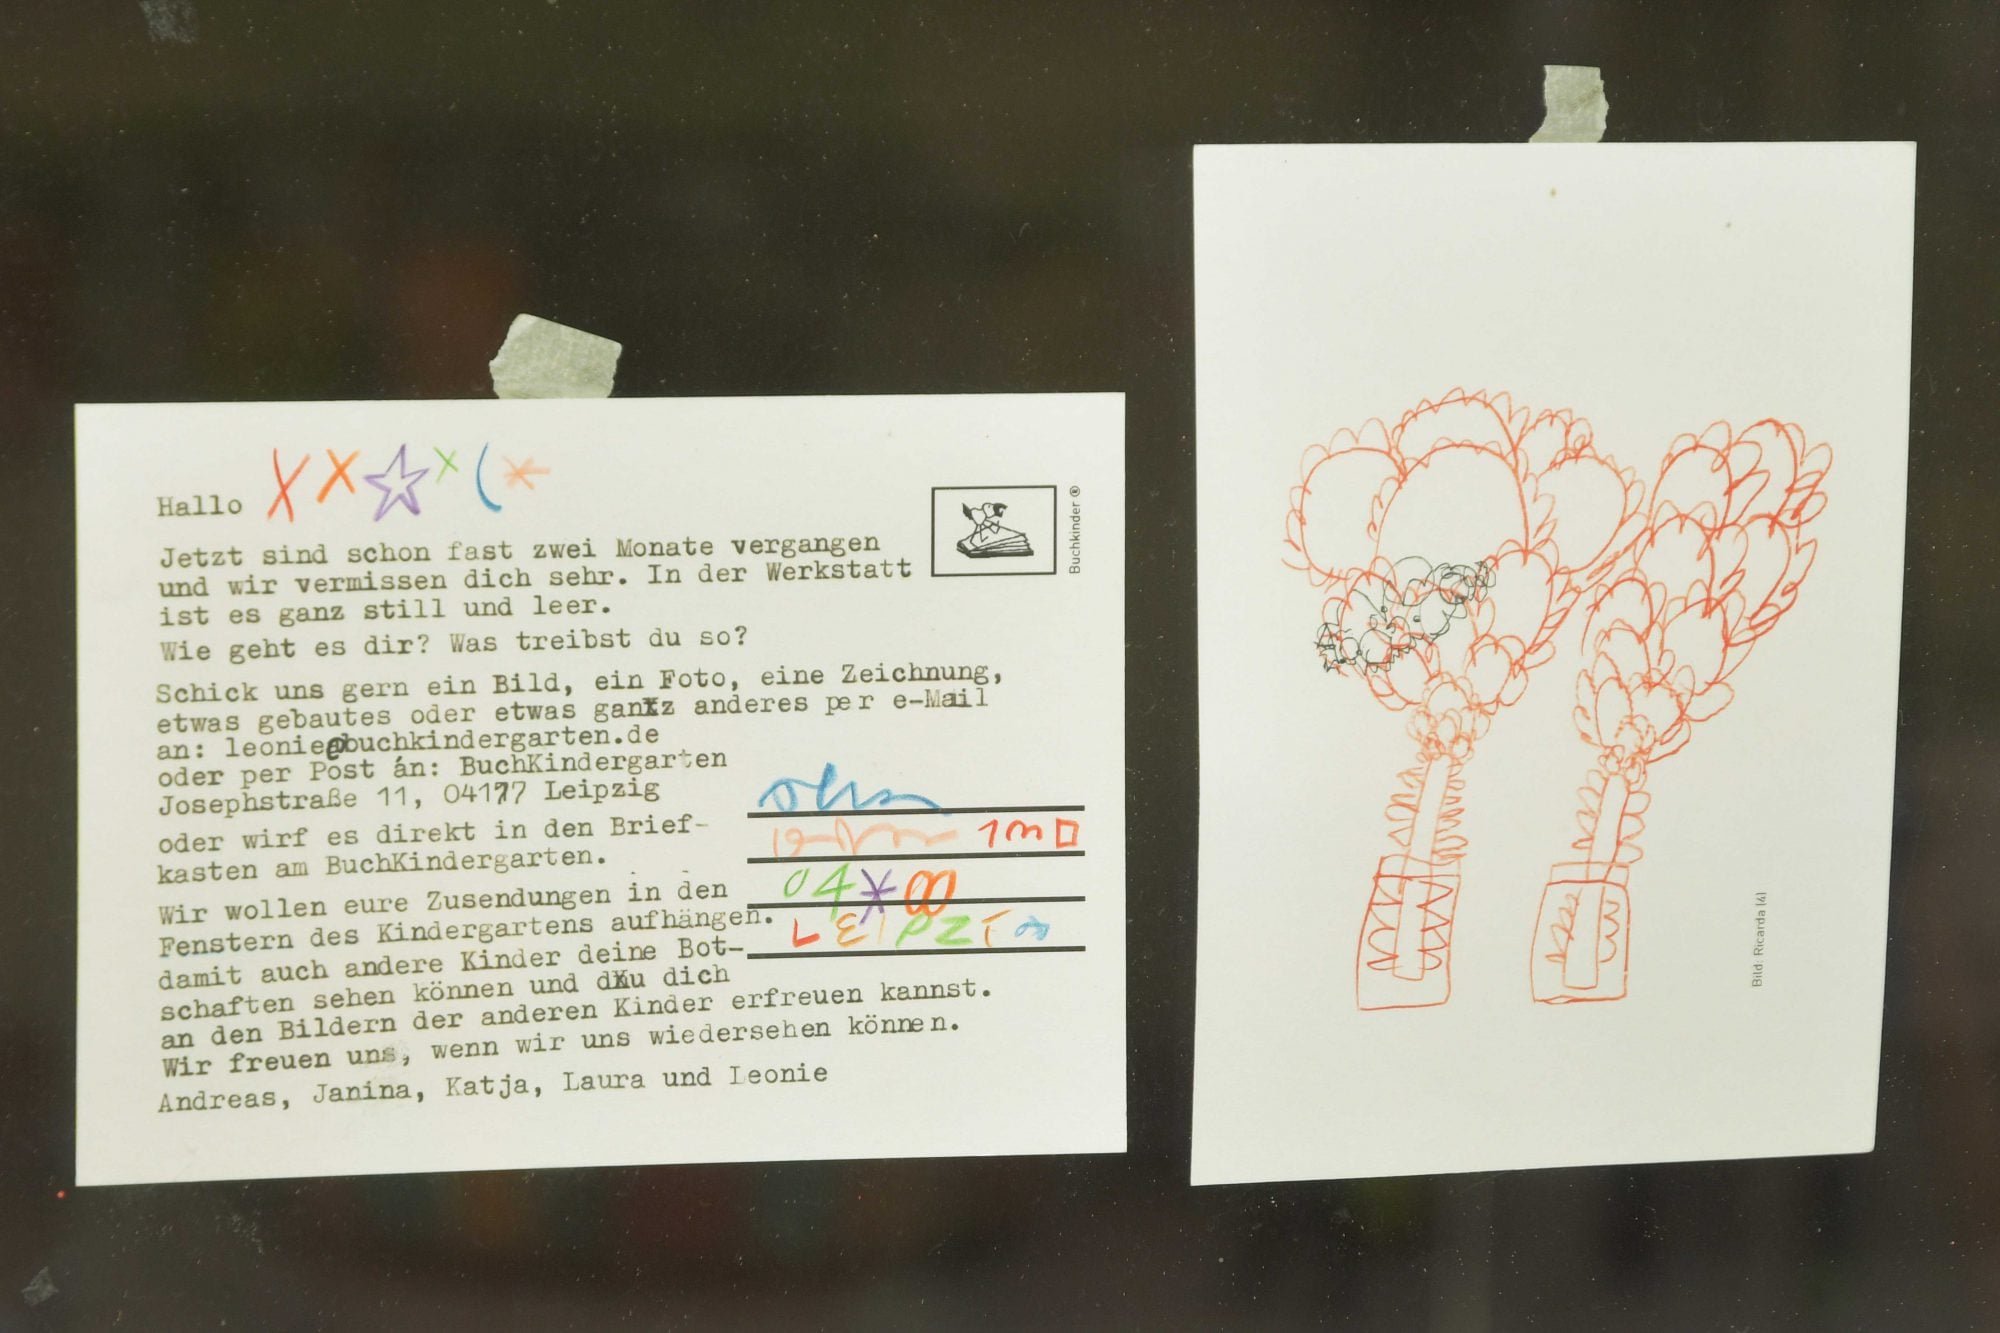 Hallo
Jetzt sind schon fast zwei Monate vergangen
und wir vermissen dich sehr. In der Werkstatt
ist es ganz still und leer.
Wie geht es dir? Was treibst du so?
Schick uns gern ein Bild, ein Foto, eine Zeichnung,
etwas gebautes oder etwas ganxz anderes per e-Mail
an: leonie@buchkindergarten.de
oder per Post án: BuchKindergarten
Josephstraße 11, 04177 Leipzig
oder wirf es direkt in den Brief-
kasten am BuchKindergarten.
Wir wollen eure Zusendungen in den
Fenstern des Kindergartens aufhängen.
damit auch andere Kinder deine Bot-
schaften sehen können und dXu dich
an den Bildern der anderen Kinder erfreuen kannst.
Wir freuen uns, wenn wir uns wiedersehen können.
Andreas, Janina, Katja, Laura und Leonie
Buchkinder ®
LEIPZIG
Bild: Ricarda (4)